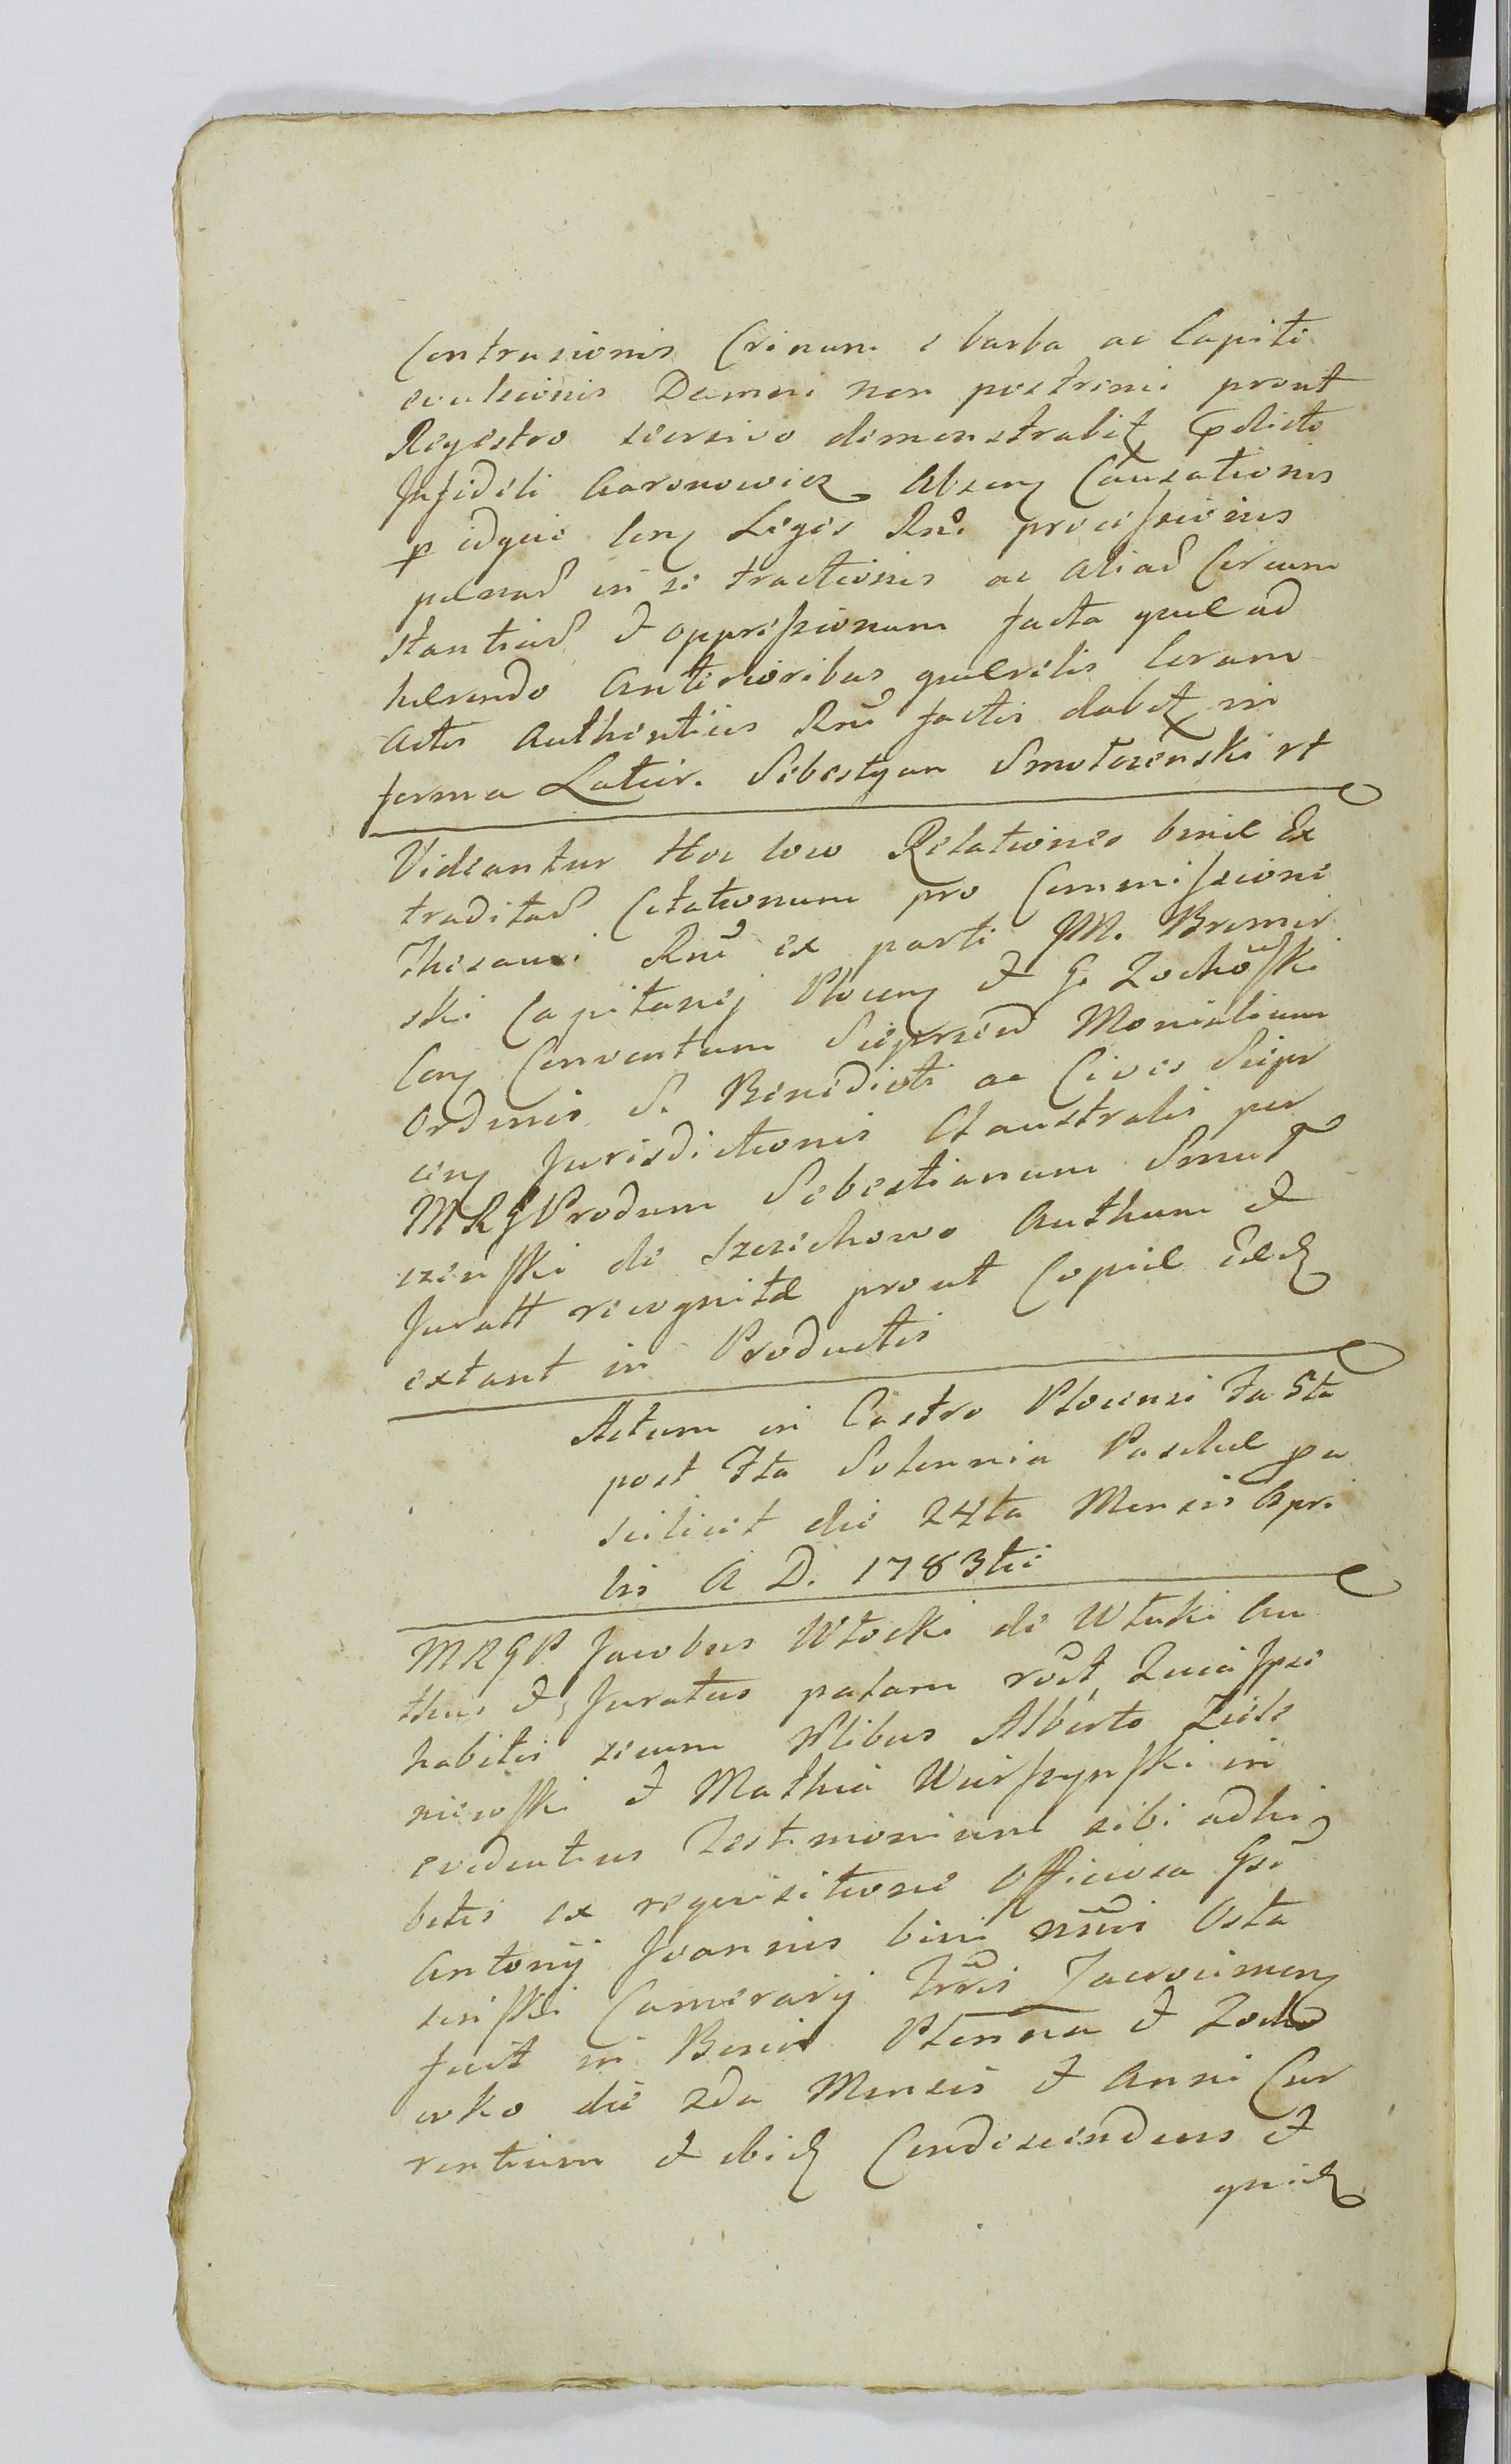 Contrusionis Crinum e barba ac Capite
evulsionis Damni non postremi prout
Regestro seorsivo demonstrabit
Infideli Aaronowicz Absen Causationis
p idque Con Legis Rni processionis
in se tractionis ac aliar Circum
stantiar & oppressionum facta quae ad
haerendo Anterioribus quaerelis Coram
Actis Authenticis Rni factis dabit in
forma Latiur. Sebestyan Smolazenski rt
Videantur Hoc loco Relationes binae Ex
traditar Citationum pro Commissione
Thesauri Rni ex parte JM. Bromir
ski Capitanej Plocen & G. Zochoski
Con Conventum Sieprcen Monialium
Ordinis S. Benedicti ac Cives Siepr
cen Jurisdictionis Claustralis per
MRGProdum Sebestianum Smol
czenski de Szczechowo Authum &
Juratt recognitae prout Copiae
extant in Productis
Actum in Castro Plocensi Fa 5ta
post Fta Solennia Paschae pa
scilicet die 24ta Mensis Apri
lis A D. 1783tii
MRGP Jacobus Wlocki de Wluki Au
thus & Juratus palam Quia Ipse
habitis secum Nlibus Alberto Ziele
niewski & Mathia Wierszynski in
evidentius Testimonium sibi adhi
bitis ex requisitione Officiosa Gsi
Antonij Joannis bini nnis Osta
szewski Camerarij Trris Zacrocimen
fuit in Bonis & Zocho
wko die 2da Mensis & Anni Cur
rentium & ibid Condescendens &
quid